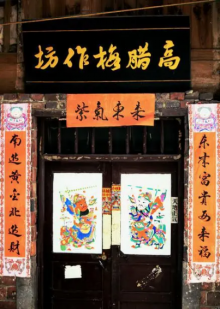 高腊梅作坊
紫氣東来
东来富贵西来福
南进黄金北进财